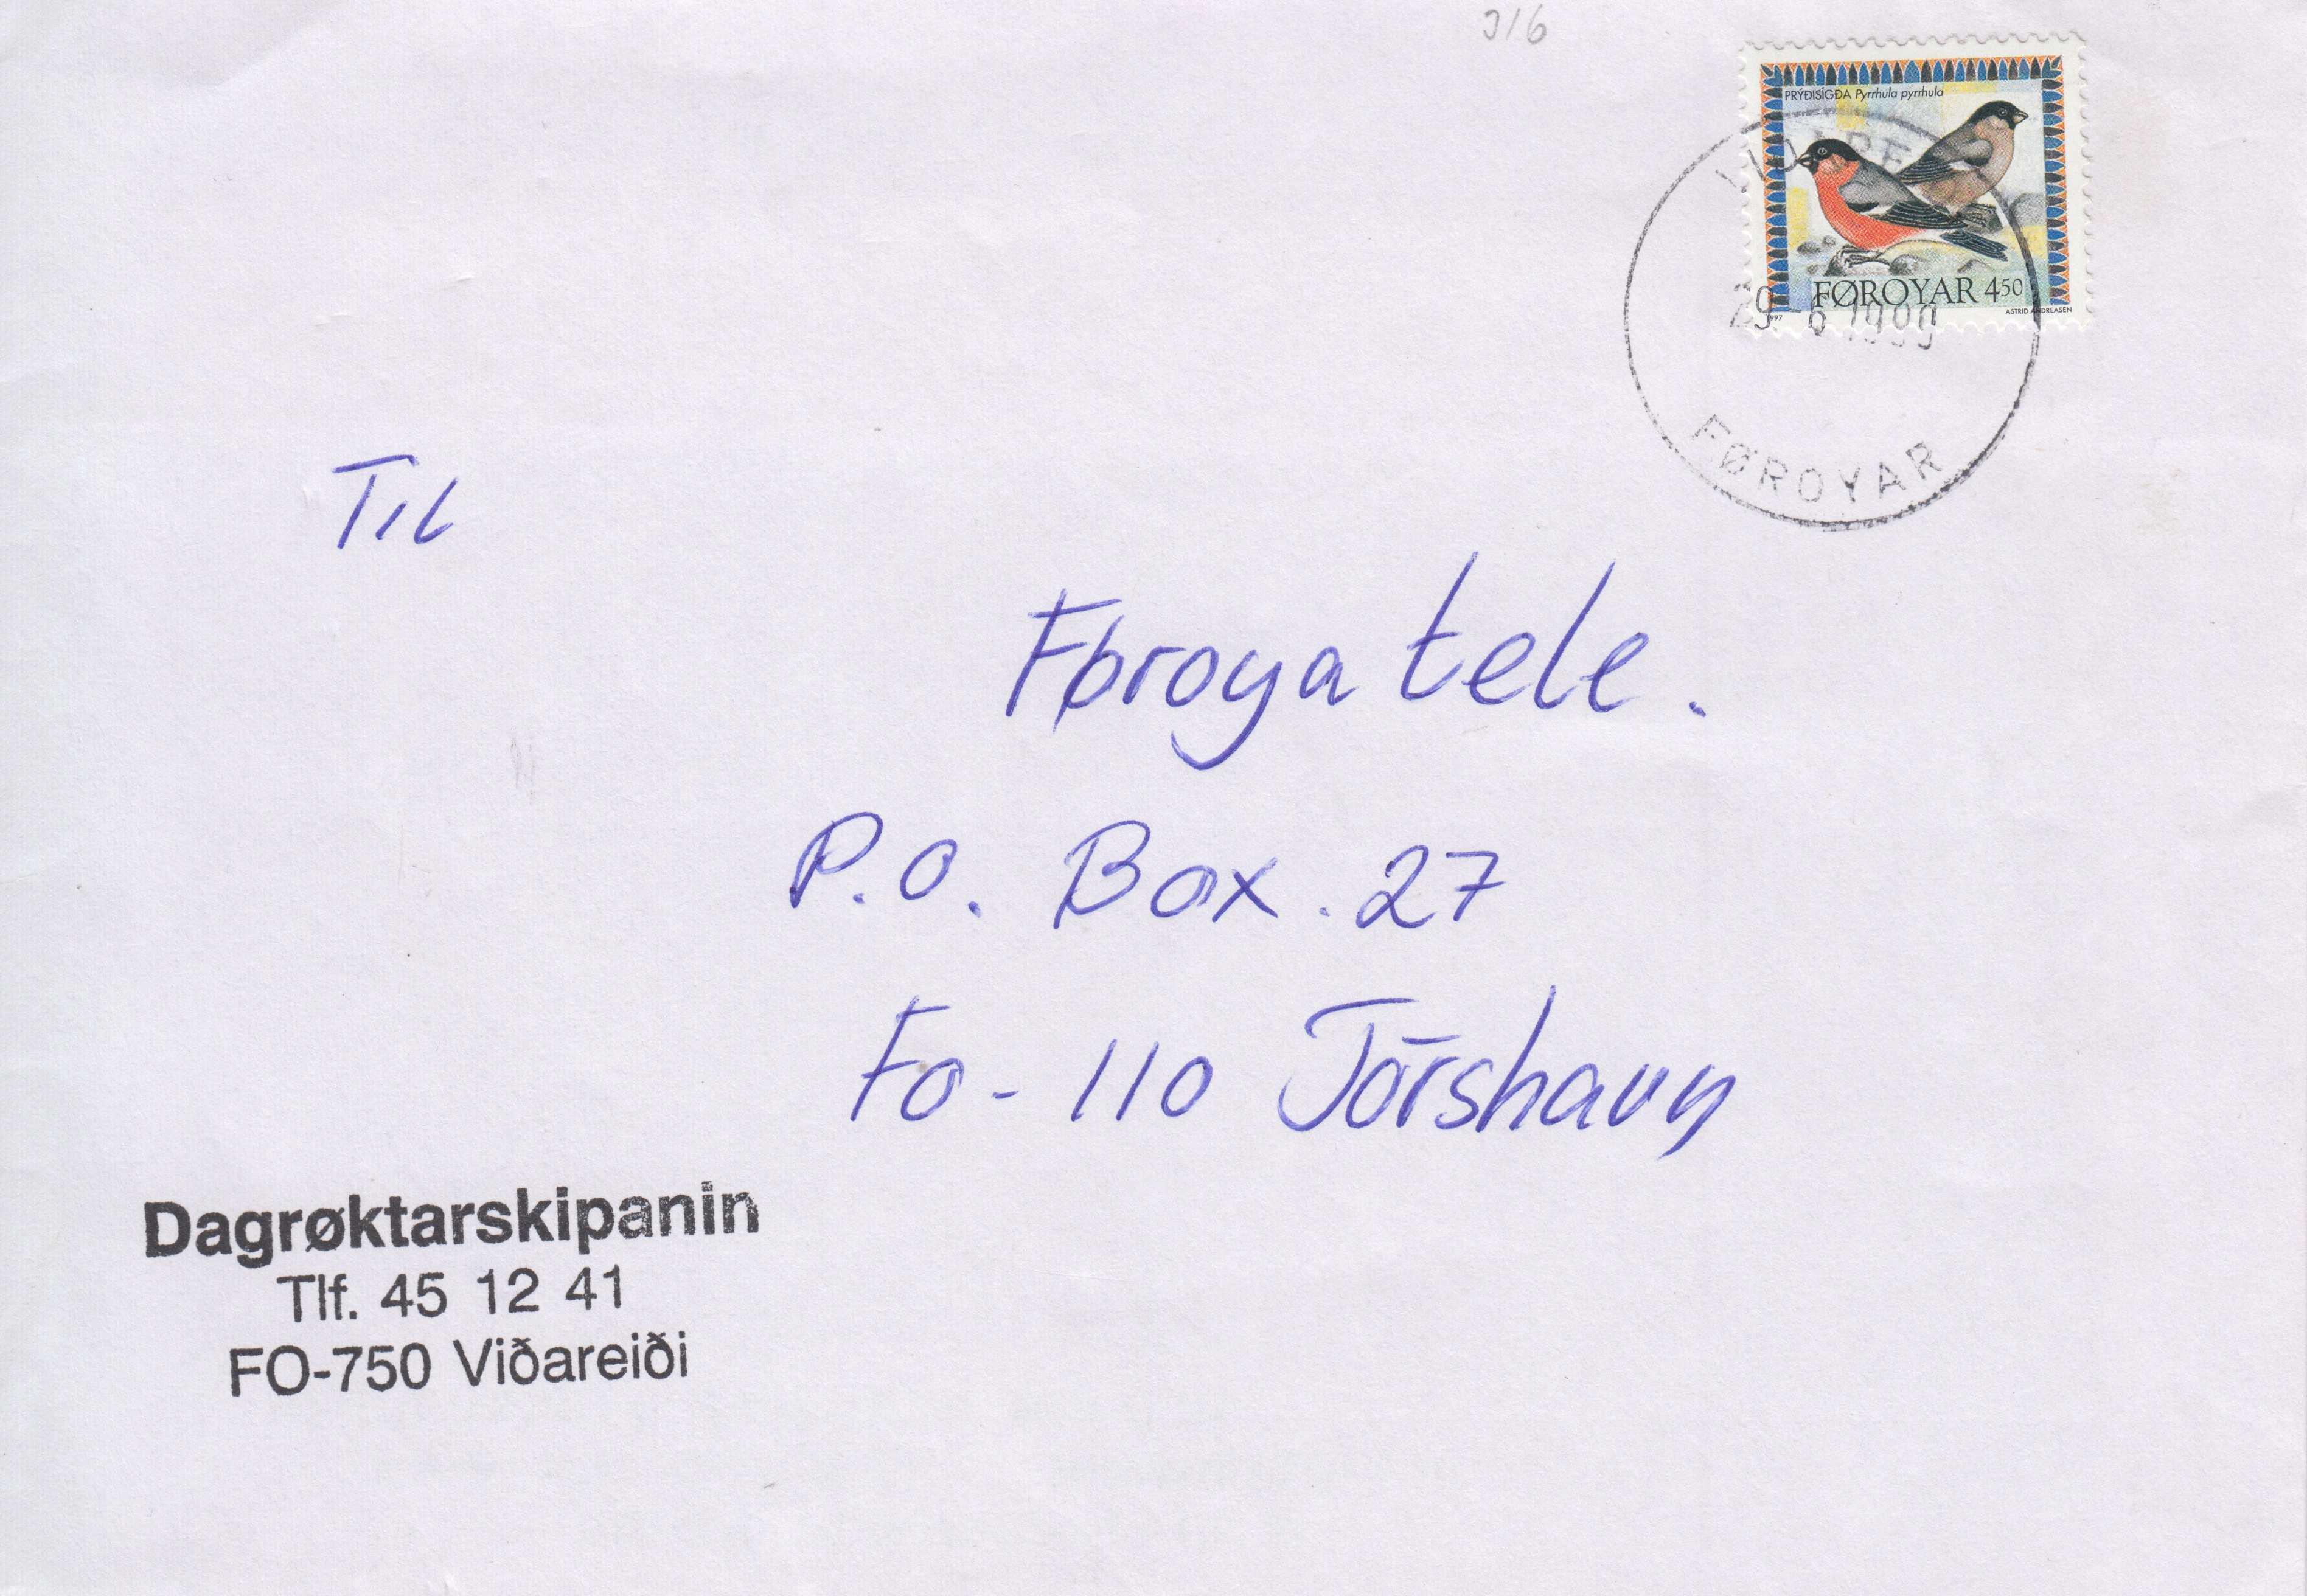 316
PRÝÐISÍGDA Pyrrhula pyrrhula
FØROYAR 450
1997
ASTRID ANDREASEN
29. 6. 1999
FØROYAR
Til
Føroya tele.
P.O. Box. 27
Fo - 110 Tórshavn
Dagrøktarskipanin
Tlf. 45 12 41
FO-750 Viðareiði